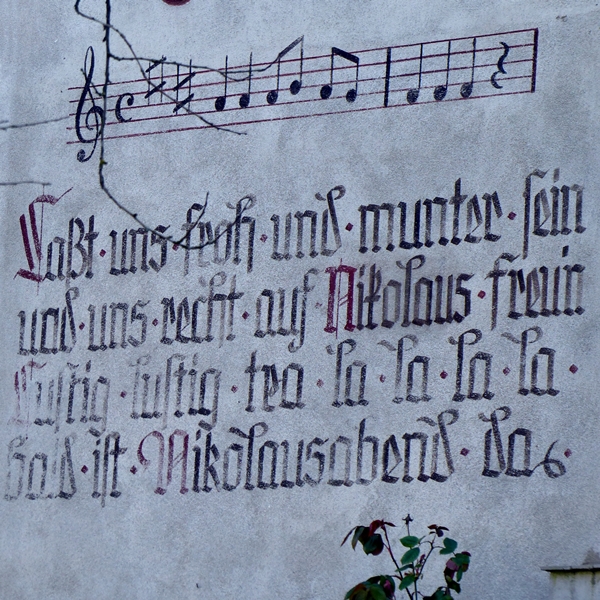 Laßt · uns · froh · und · munter · sein
und · uns · recht · auf · Nikolaus · freun
Lustig · lustig · tra · la · la · la · la ·
bald · ist · Nikolausabend · da ·